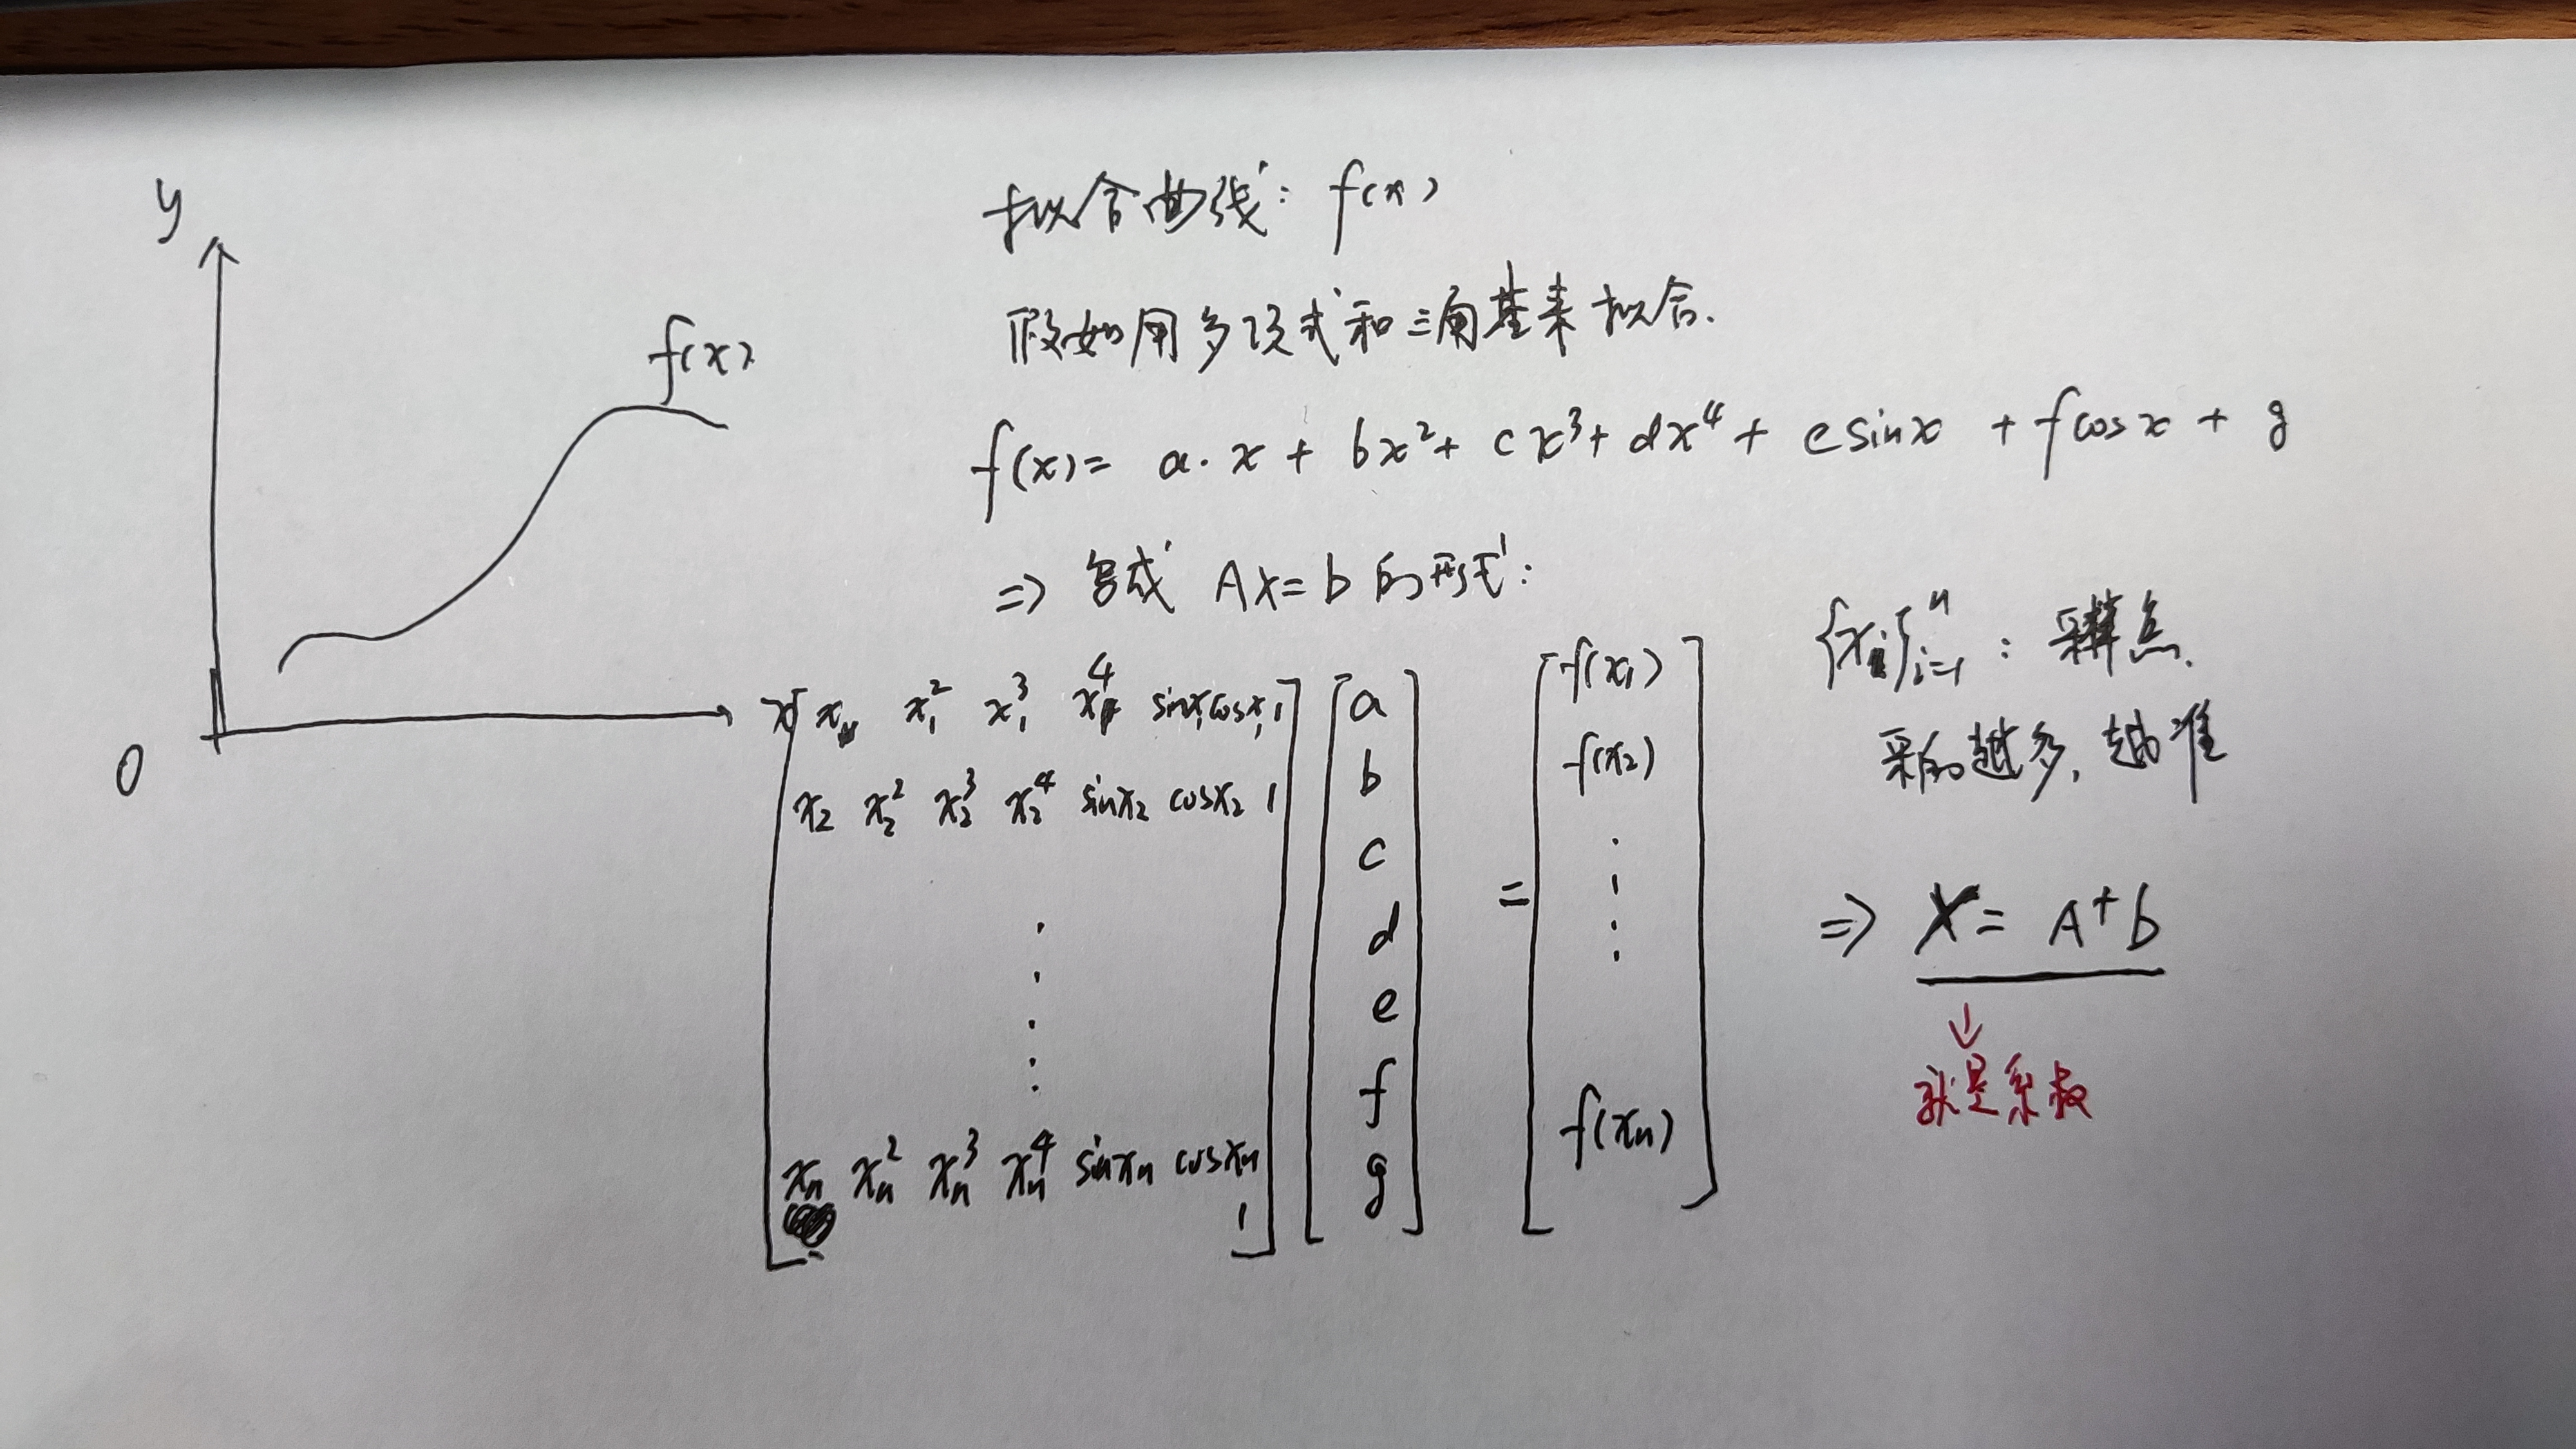 y
f(x)
0
x
拟合曲线: f(x)
假如用多项式和三角基来拟合.
f(x)= a·x + bx²+ cx³+ dx⁴ + esinx + fcosx + g
=> 写成 AX=b 的形式:
x₁ x₁² x₁³ x₁⁴ sinx₁ cosx₁ 1
x₂ x₂² x₂³ x₂⁴ sinx₂ cosx₂ 1
xₙ xₙ² xₙ³ xₙ⁴ sinxₙ cosxₙ
1
a
b
c
d
e
f
g
=
f(x₁)
f(x₂)
f(xₙ)
{xᵢ}ⁿᵢ₌₁ : 采样点.
采的越多, 越准
=> X = A⁺b
↓
就是系数